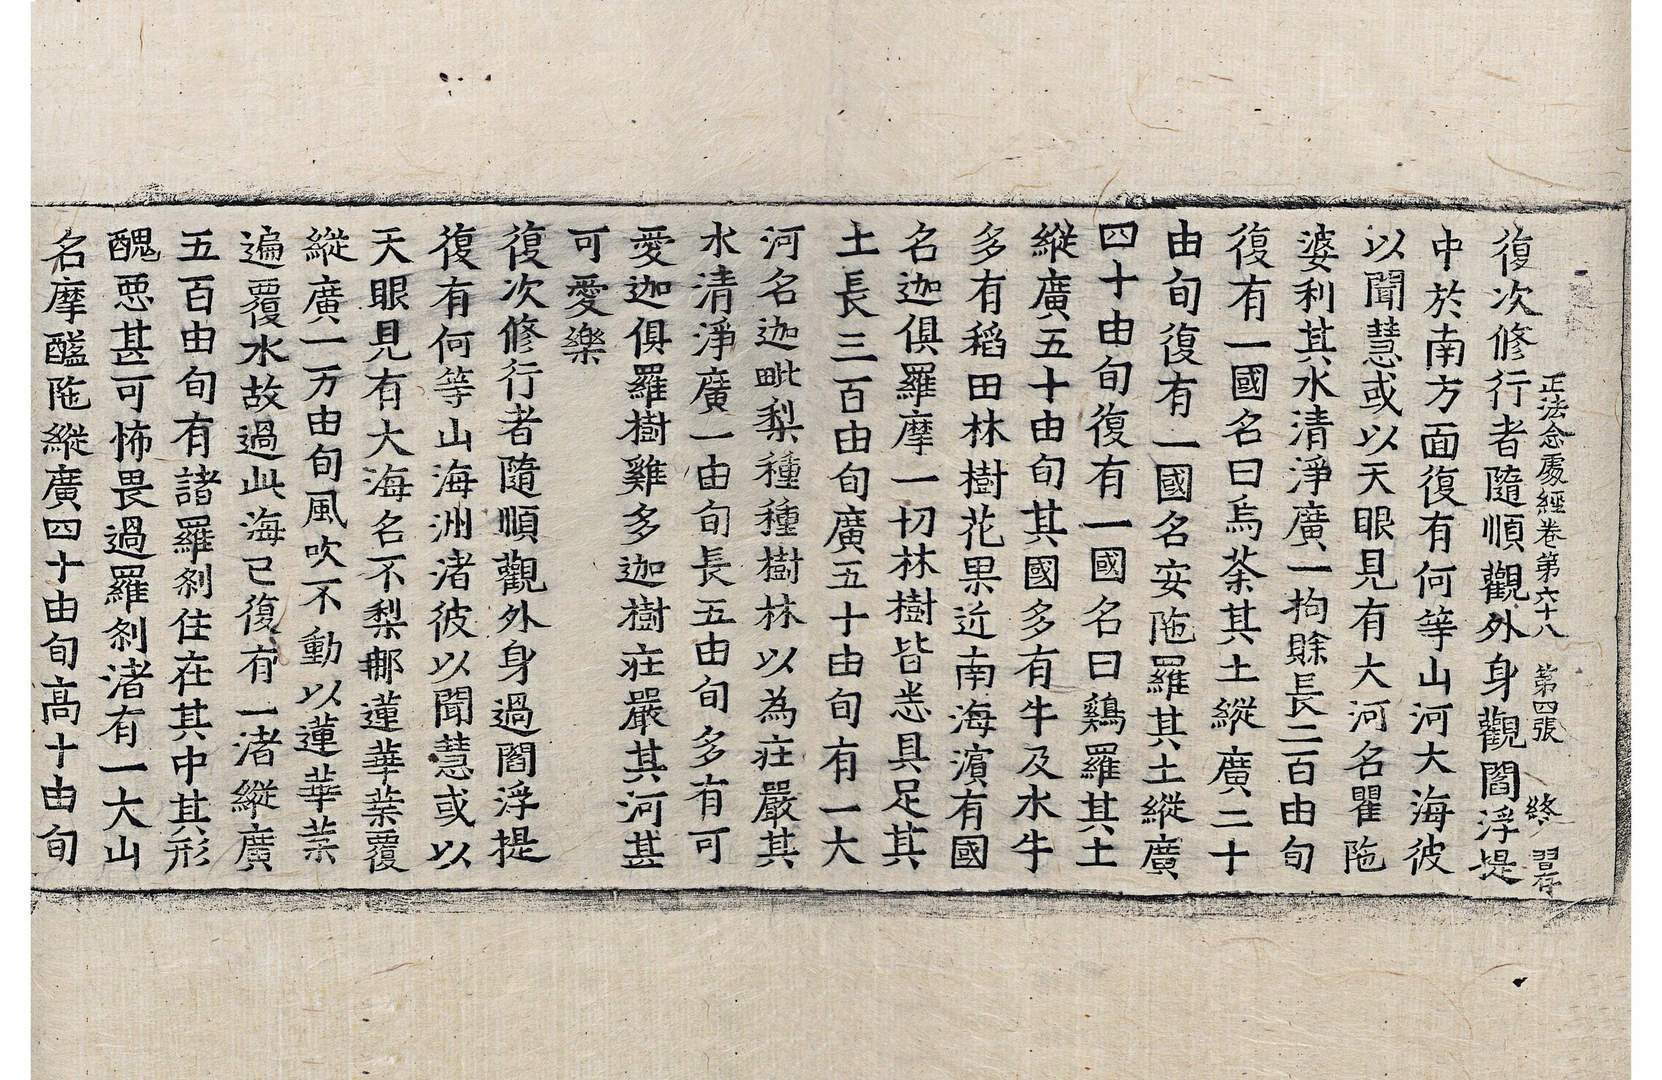 正法念處經卷第六十八 第四張 終 習存
復次修行者隨順觀外身觀閻浮堤
中於南方面復有何等山河大海彼
以聞慧或以天眼見有大河名瞿陁
婆利其水清淨廣一拘賒長三百由旬
復有一國名曰烏荼其土縱廣二十
由旬復有一國名安陁羅其土縱廣
四十由旬復有一國名曰鷄羅其土
縱廣五十由旬其國多有牛及水牛
多有稻田林樹花果近南海濵有國
名迦俱羅摩一切林樹皆悉具足其
土長三百由旬廣五十由旬有一大
河名迦毗梨種種樹林以為莊嚴其
水清淨廣一由旬長五由旬多有可
愛迦俱羅樹雞多迦樹莊嚴其河甚
可愛樂
復次修行者隨順觀外身過閻浮提
復有何等山海洲渚彼以聞慧或以
天眼見有大海名不梨那蓮華葉覆
縱廣一万由旬風吹不動以蓮華葉
遍覆水故過此海已復有一渚縱廣
五百由旬有諸羅剎住在其中其形
醜惡甚可怖畏過羅剎渚有一大山
名摩醯陁縱廣四十由旬高十由旬